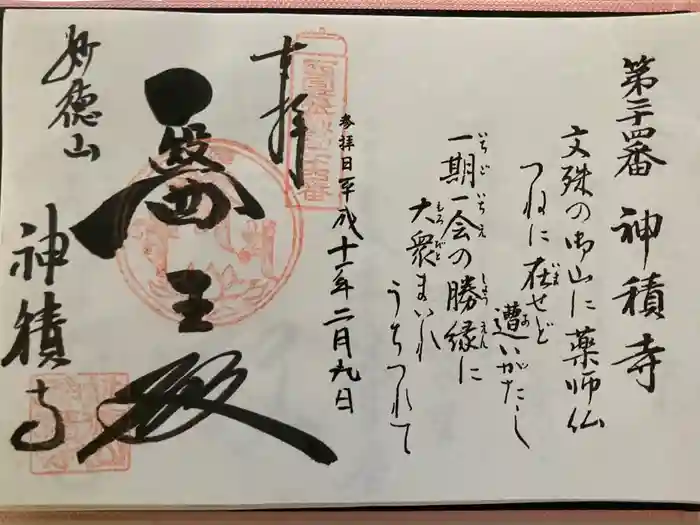 第二十四番 神積寺
文殊の御山に薬師仏
つねに在せど
遭いがたし
一期一会の勝縁に
大衆まいれ
うちつれて
参拝日 平成十一年二月九日
奉拝
醫王殿
妙徳山
神積寺